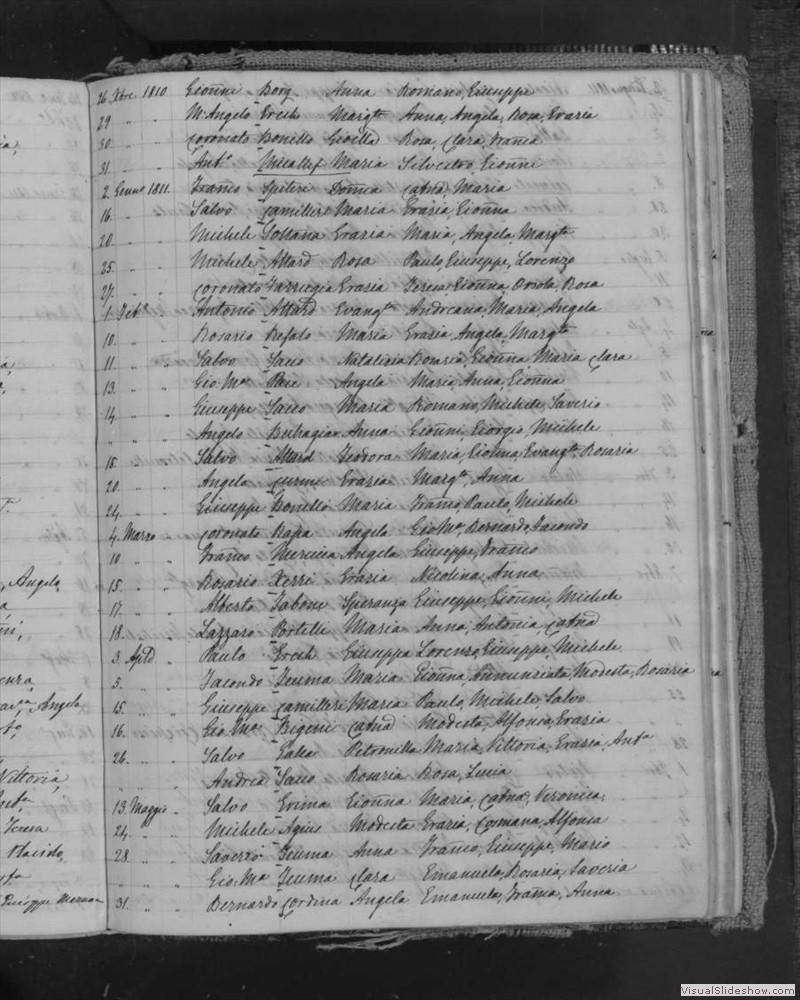 26 Xbre 1810 Gionñi Borg Anna Romano, Giuseppe
29 " " M. Angelo Grech Margta Anna, Angela, Rosa, Grazia
30 " " Coronato Bonello Gioella Rosa, Clara, Franca
31 " " Anto Micallef Maria Silvestro, Gionñi
2 Genno 1811 Franco Spiteri Domca Catna, Maria
16 " " Salvo Camilleri Maria Grazia, Gionña
20 " " Michele Soltana Grazia Maria, Angela, Margta
25 " " Michele Attard Rosa Paulo, Giuseppe, Lorenzo
27 " " Coronato Farrugia Grazia Teresa, Gionña, Orsola, Rosa
1 Febo " Antonio Attard Evangta Andreana, Maria, Angela
10 " " Rosario Refalo Maria Grazia, Angela, Margta
11 " " Salvo Sacco Natalizia Rosaria, Gionña, Maria, Clara
13 " " Gio. Ma Pace Angela Maria, Anna, Gionña
14 " " Giuseppe Sacco Maria Romano, Michele, Saverio
" " " Angelo Buhagiar Anna Gionñi, Giorgio, Michele
15 " " Salvo Attard Teodora Maria, Gionña, Evangta, Rosaria
20 " " Angelo Curmi Grazia Margta, Anna
24 " " Giuseppe Bonello Maria Franco, Paulo, Michele
4 Marzo " Coronato Rapa Angela Gio Ma, Bernardo, Jacondo
10 " " Franco Mercieca Angela Giuseppe, Franco
15 " " Rosario Xerri Grazia Nicolina, Anna
17 " " Alberto Tabone Speranza Giuseppe, Gionñi, Michele
18 " " Lazzaro Portelli Maria Anna, Antonia, Catna
3 Aple " Paulo Grech Giuseppa Lorenzo, Giuseppe, Michele
5 " " Jacondo Zeuma Maria Gionña, Annunciata, Modesta, Rosaria
15 " " Giuseppe Camilleri Maria Paulo, Michele, Salvo
16 " " Gio. Ma Bigeni Catna Modesta, Alfonsa, Grazia
26 " " Salvo Galea Petronilla Maria, Vittoria, Grazia, Anta
" " " Andrea Sacco Rosaria Rosa, Lucia
13 Maggio " Salvo Grima Gionña Maria, Catna, Veronica
24 " " Michele Agius Modesta Grazia, Cosmana, Alfonsa
28 " " Saverio Zeuma Anna Franco, Giuseppe, Mario
" " " Gio. Ma Zeuma Clara Emanuela, Rosaria, Saveria
31 " " Bernardo Cordina Angela Emanuela, Franca, Anna
VisualSlideshow.com